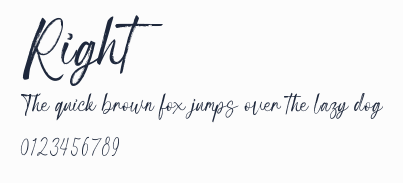 Right
The quick brown fox jumps over the lazy dog
0123456789